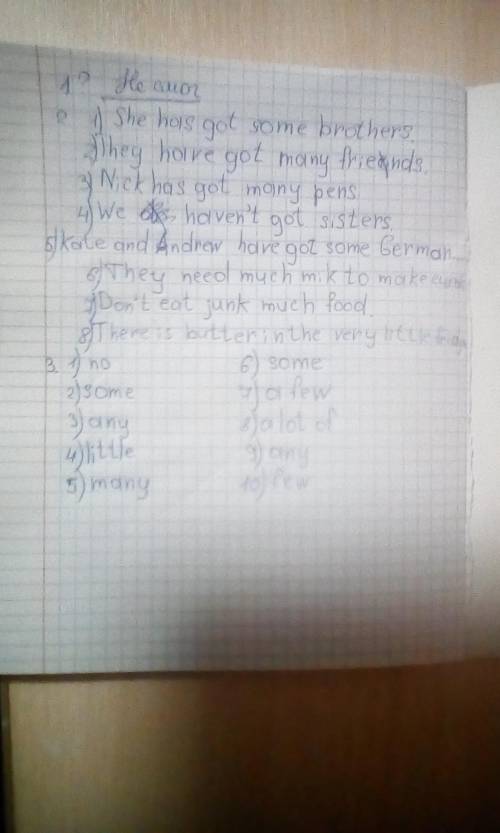 1? Не смог
2 1) She has got some brothers.
2) They have got many friends.
3) Nick has got many pens
4) We haven't got sisters.
5) Kate and Andrew have got some German
6) They need much mik to make
7) Don't eat junk much food.
8) There is butter in the very little
3. 1) no 6) some
2) some 7) a few
3) any 8) a lot of
4) little 9) any
5) many 10) few